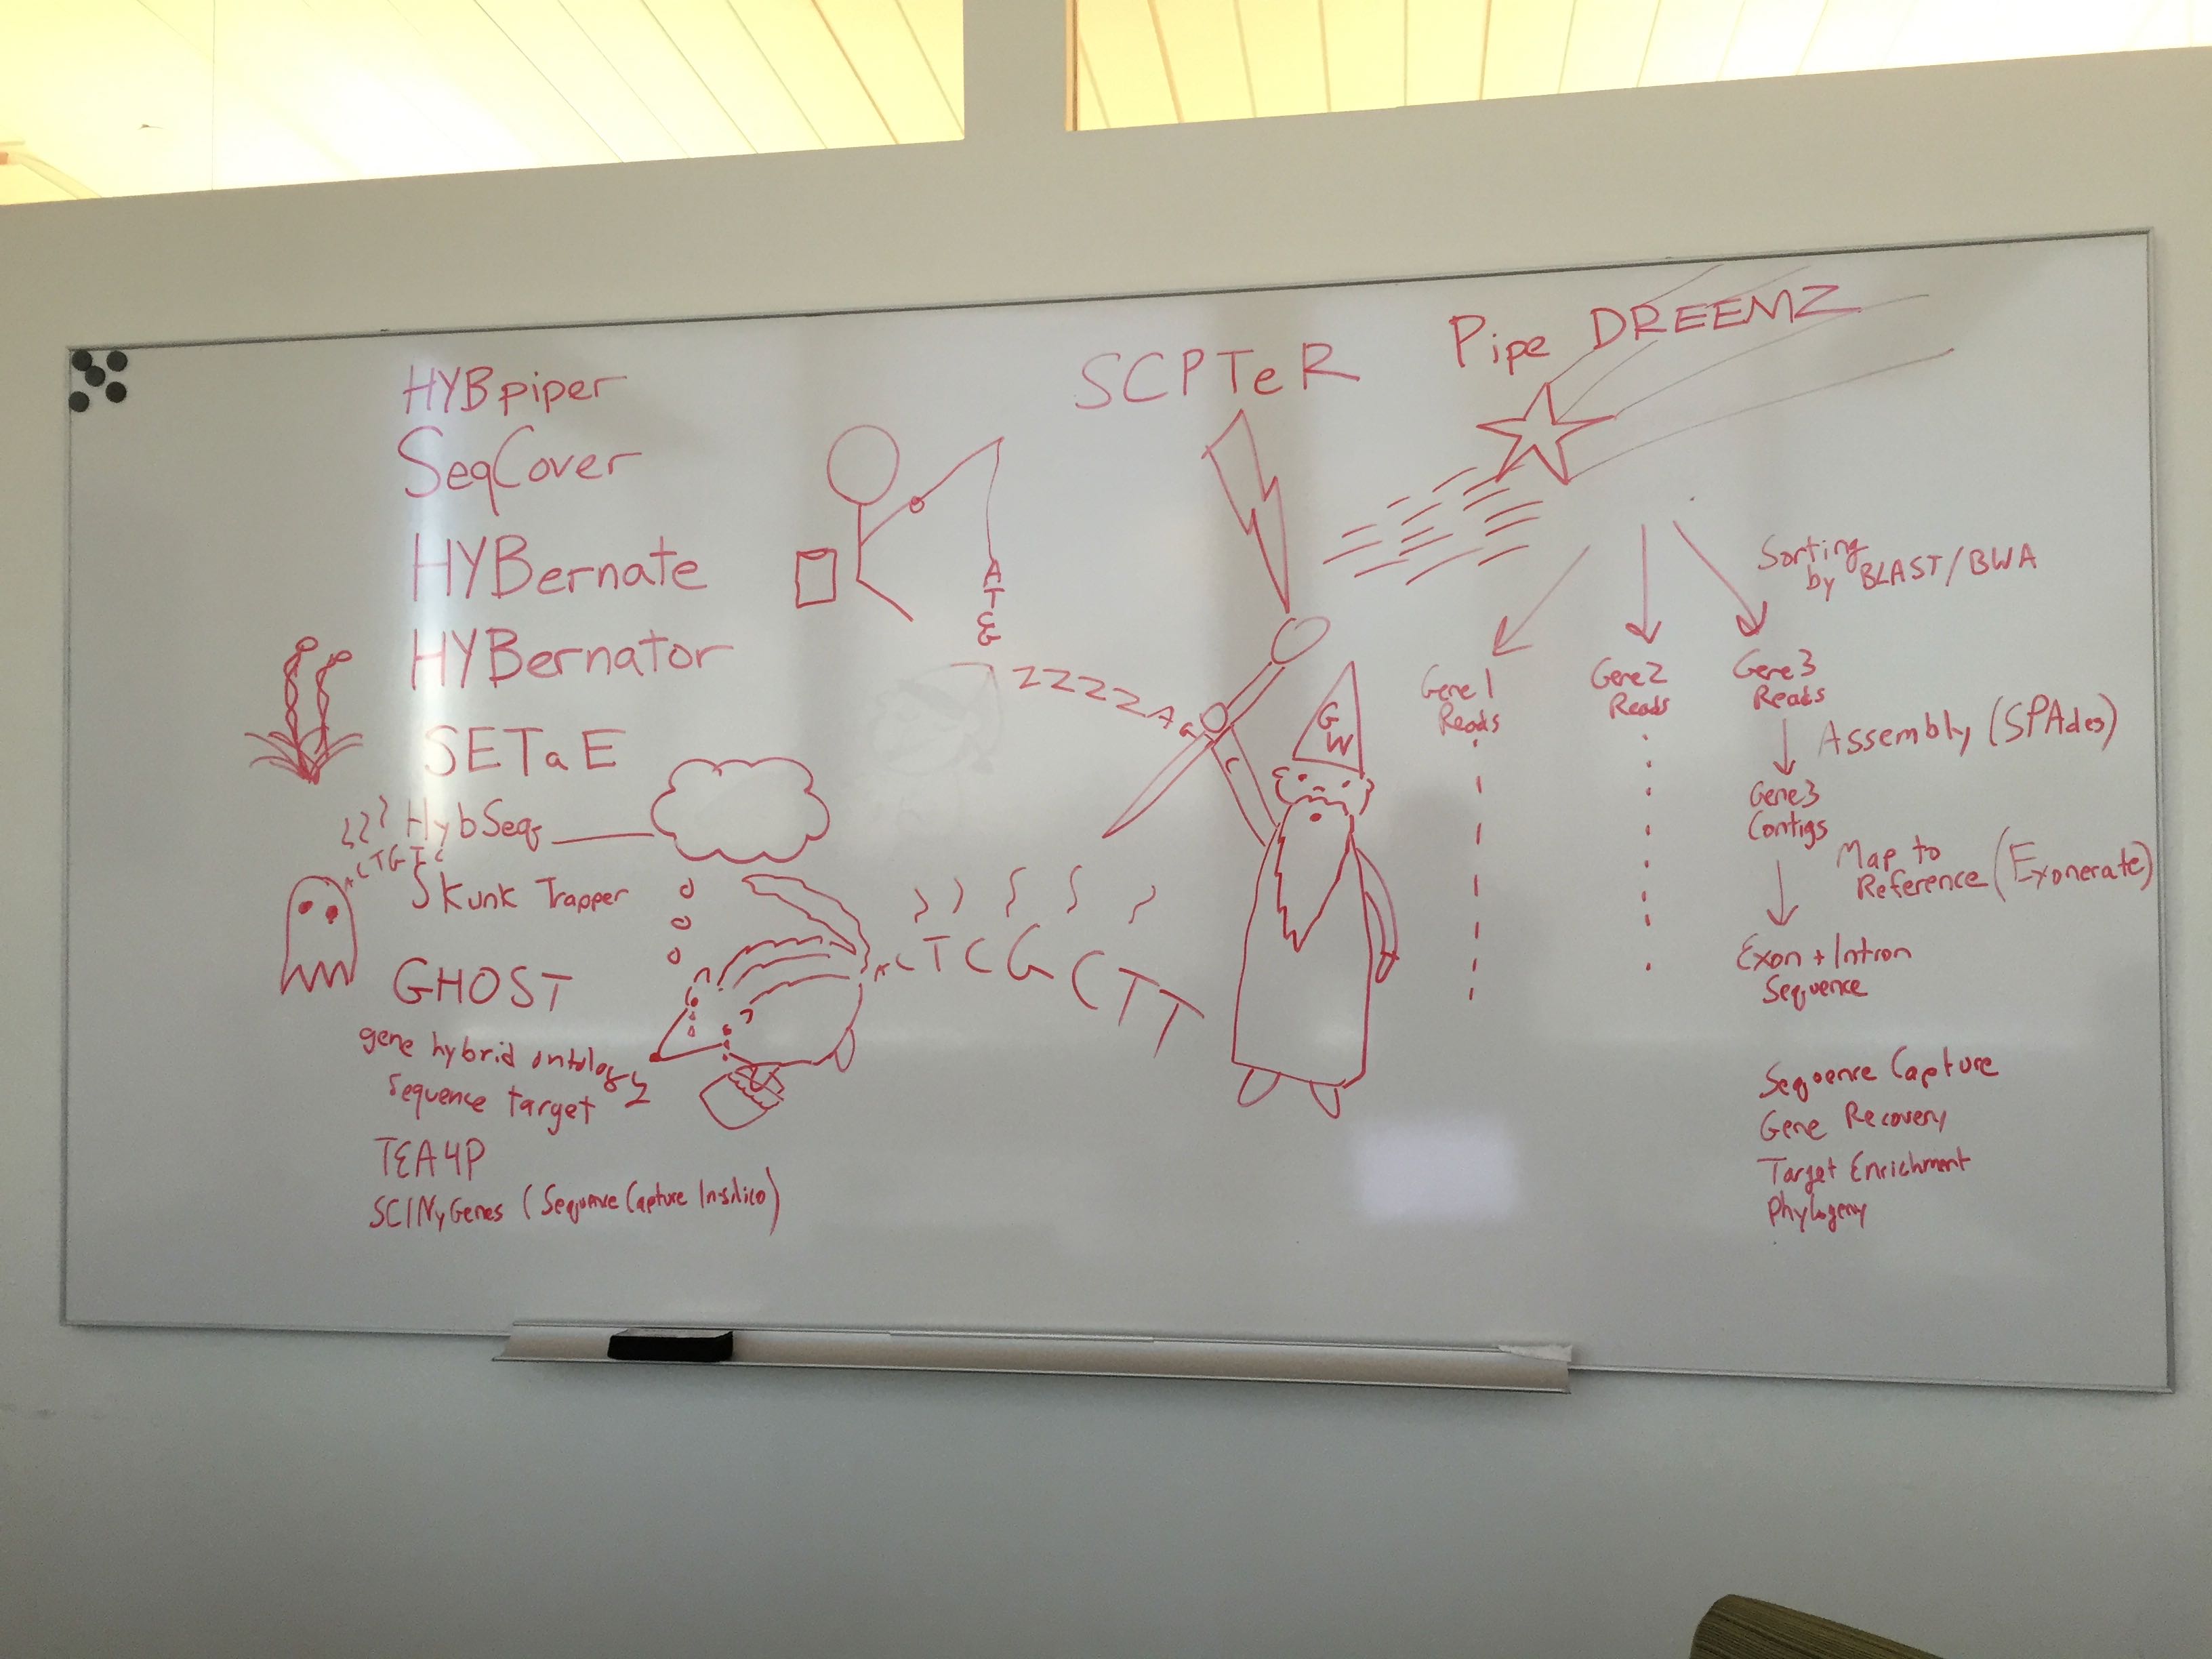 HYBpiper
SeqCover
HYBernate
HYBernator
SETaE
HybSeq
CTGTC
Skunk Trapper
GHOST
gene hybrid ontology
sequence target
TEA4P
SCINyGenes (Sequence Capture In-silico)
ATG
ZZZZAG
CTCGCTT
SCPTeR
GW
Pipe DREEMZ
Sorting
by BLAST/BWA
Gene1
Reads
Gene2
Reads
Gene3
Reads
Assembly (SPAdes)
Gene3
Contigs
Map to
Reference (Exonerate)
Exon + Intron
Sequence
Sequence Capture
Gene Recovery
Target Enrichment
Phylogeny